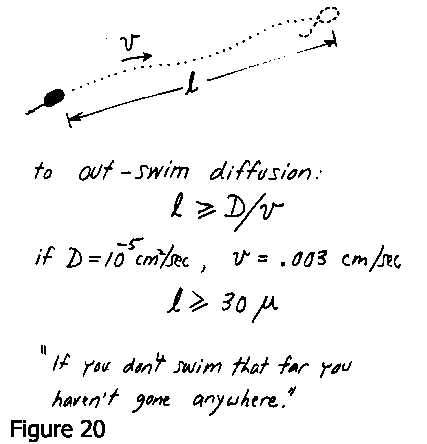 v
l
to out-swim diffusion:
l ≥ D/v
if D = 10⁻⁵ cm²/sec, v = .003 cm/sec
l ≥ 30 μ
"If you don't swim that far you
haven't gone anywhere."
Figure 20